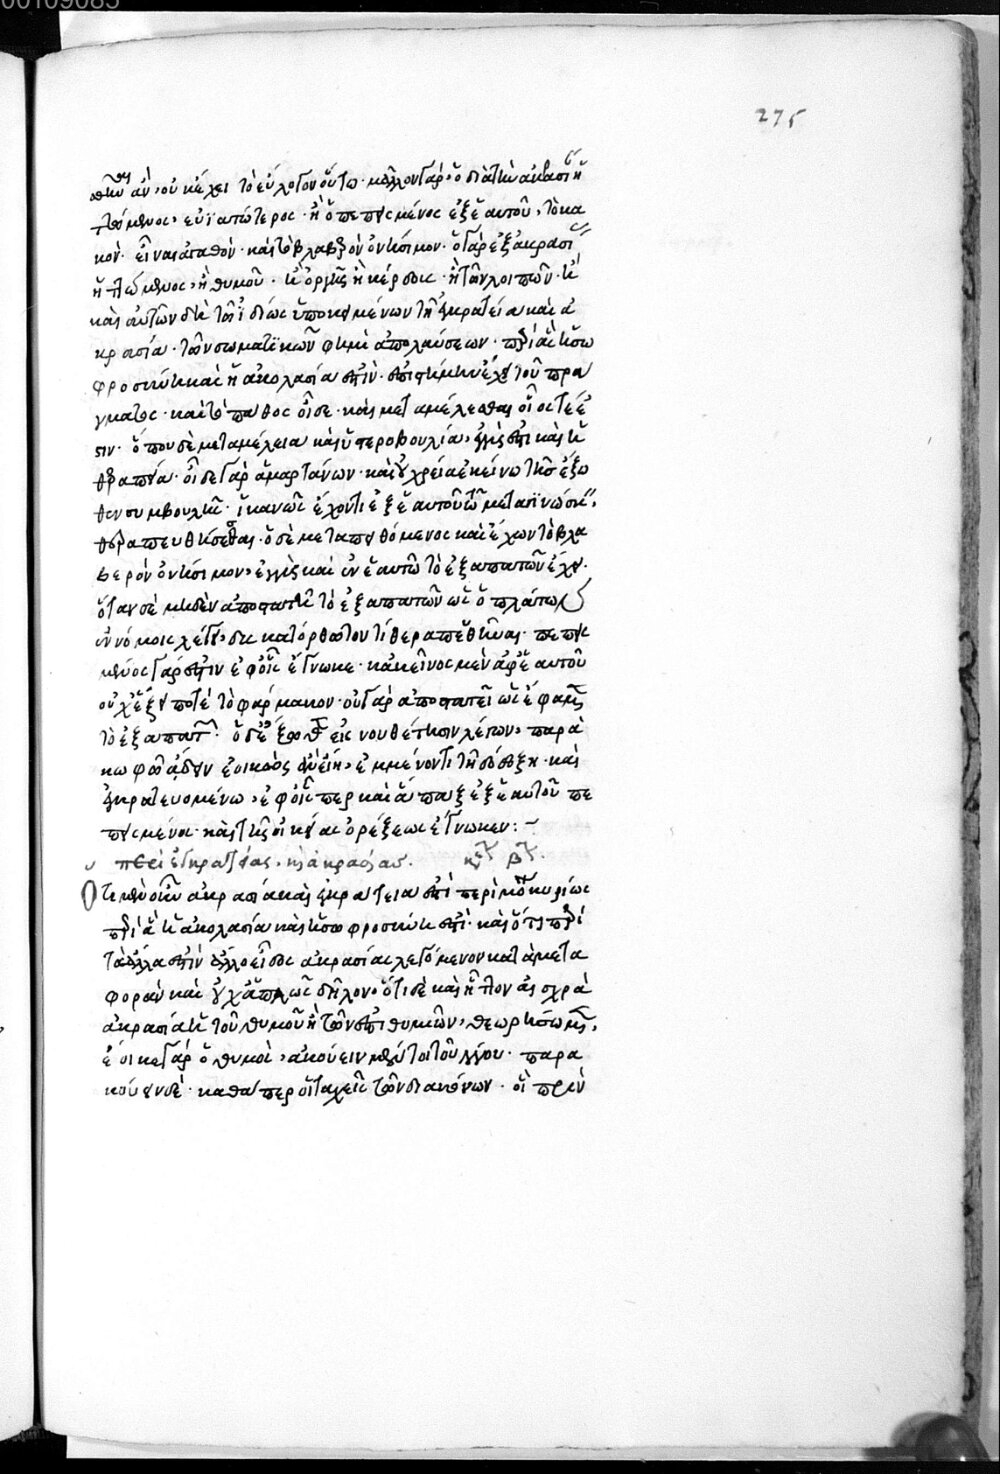 00109085
275
ἂν, οὐκ ἔχει τὸ εὔλογον οὕτω· μᾶλλον γὰρ ὁ διὰ τὴν ἀκρασίαν ἡτ
τώμενος, εὐϊατώτερος· ἢ ὁ πεπεισμένος ἐξ ἑαυτοῦ, τὸ κα
κὸν εἶναι ἀγαθὸν· καὶ τὸ βλαβερὸν ὀνήσιμον· ὁ γὰρ ἐξ ἀκρασίας
ἡττώμενος, ἢ θυμοῦ· ἢ ὀργῆς ἢ κέρδους· ἢ τῶν λοιπῶν· ἢ
καὶ αὐτῶν δὴ τῶν ἰδίως ὑποκειμένων τῇ ἐγκρατείᾳ καὶ ἀ
κρασίᾳ· τῶν σωματικῶν φημὶ ἀπολαύσεων· περὶ ἃ καὶ ἡ σω
φροσύνη καὶ ἡ ἀκολασία ἐστὶν· ἐπιστήμην ἔχει τοῦ πρά
γματος· καὶ τὸ πάθος οἶδε· καὶ μεταμέλεσθαι οἷός τέ ἐ
στιν· ὅπου δὲ μεταμέλεια καὶ ὑστεροβουλία, ἐγγὺς ἐστι καὶ ἡ
θεραπεία· οἶδε γὰρ ἁμαρτάνων· καὶ οὐ χρεία ἐκείνῳ τῆς ἔξω
θεν συμβουλῆς· ἱκανῶς ἔχοντι ἐξ ἑαυτοῦ τῷ μεταγινώσκειν,
θεραπευθήσεσθαι· ὁ δὲ μεταπειθόμενος καὶ ἔχων τὸ βλα
βερὸν ὀνήσιμον, ἐγγὺς καὶ ἐν ἑαυτῷ τὸ ἐξαπατῶν ἔχει·
ὅταν δὲ μηδὲν ἀποστατῇ τὸ ἐξαπατῶν ὡς ὁ πλάτων
ἐν νόμοις λέγει, δυσκατόρθωτον τὸ θεραπευθῆναι· πεπεισ
μένος γάρ ἐστιν ἐφ' οἷς ἔγνωκε· κἀκεῖνος μὲν ἀφ' ἑαυτοῦ
οὐχ ἕξει ποτέ τὸ φάρμακον· οὐ γὰρ ἀποστατεῖ ὡς ἔφαμεν
τὸ ἐξαπατῶν· ὁ δὲ ἔξωθεν εἰς νουθέτησιν λέγων, παρὰ
κωφῷ ᾄδειν ἐοικὼς ἂν εἴη, ἐμμένοντι τῇ δόξῃ· καὶ
ἐγκρατευομένῳ, ἐφ' οἷς περ καὶ ἅπαξ ἐξ ἑαυτοῦ πέ
πεισμένος· καὶ τῆς οἰκείας ὀρέξεως ἔγνωκεν:~
περὶ ἐγκρατείας, καὶ ἀκρασίας.
Ὅτι μὲν οὖν ἀκρασία καὶ ἐγκράτεια ἐστὶ περὶ μόνον κυρίως
περὶ ἃ ἡ ἀκολασία καὶ ἡ σωφροσύνη ἐστὶ· καὶ ὅτι περὶ
τὰ ἄλλα ἐστὶν ἄλλο εἶδος ἀκρασίας λεγόμενον κατὰ μετα
φορὰν καὶ οὐχ ἁπλῶς δῆλον, ὅτι δὲ καὶ ἧττον αἰσχρὰ
ἀκρασία ἡ τοῦ θυμοῦ ἢ τῶν ἐπιθυμιῶν, θεωρήσωμεν,
ἔοικε γὰρ ὁ θυμὸς, ἀκούειν μέν τοι τοῦ λόγου· παρα
κούειν δὲ· καθάπερ οἱ ταχεῖς τῶν διακόνων· οἳ πρὶν